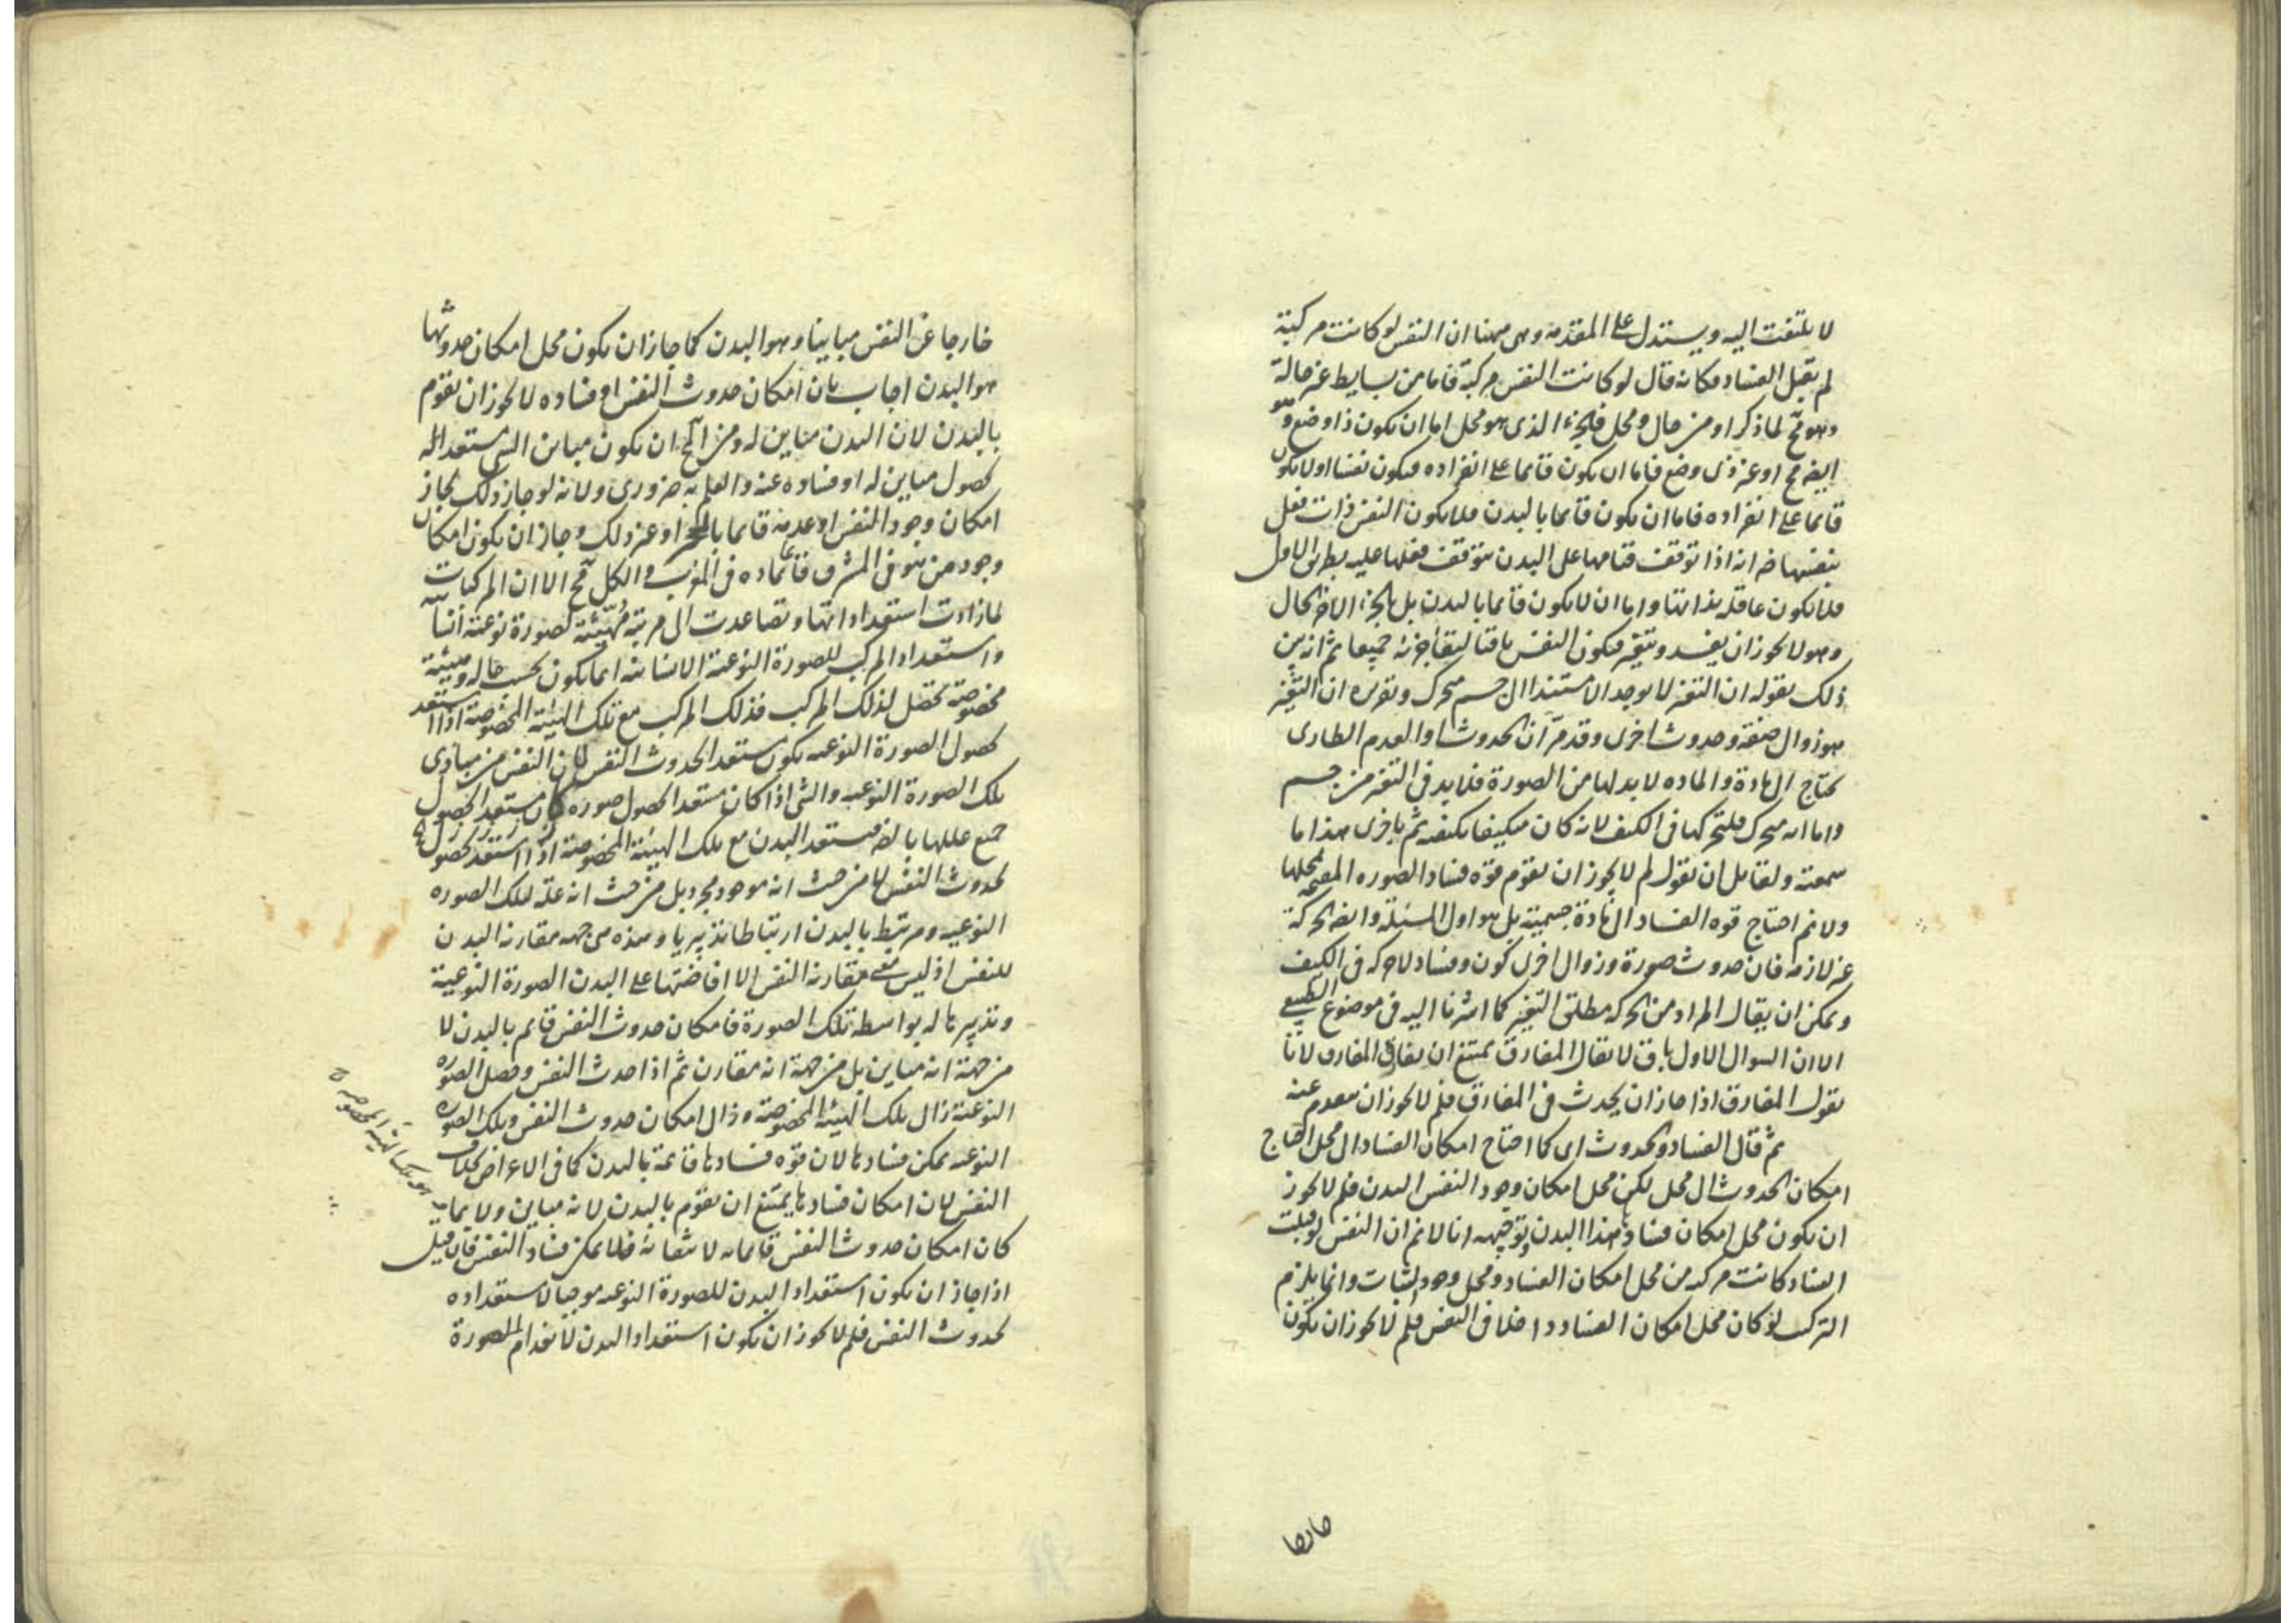 لا يلتفت اليه ويستدل على المقدمة وهى ههنا ان النفس لو كانت مركبة
لم يقبل الفساد فكانه قال لو كانت النفس مركبة فاما من بسايط غير حالة
وهو مح لما ذكر او من حال ومحل فالجزء الذى هو محل اما ان يكون ذا وضع وهو
ايضا مح او غير ذى وضع فاما ان يكون قائما على انفراده فيكون نفسا او لا يكون
قائما على انفراده فاما ان يكون قائما بالبدن فلا يكون النفس ذات فعل
بنفسها ضرورة انه اذا توقف قيامها على البدن يتوقف فعلها عليه بطريق الاولى
فلا يكون عاقلة بذاتها واما ان لا يكون قائما بالبدن بل بالجزء الاخر الحال
وهو لا يجوز ان يفسد ويتغير فيكون النفس باقيا لبقاء جزئه جميعا ثم انه بين
ذلك بقوله ان التغير لا يوجد الا مستندا الى جسم متحرك وتقريره ان التغير
هو زوال صفة وحدوث اخرى وقد مر ان الحدوث او العدم الطارى
يحتاج الى مادة والمادة لا بد لها من الصورة فلا بد فى التغير من جسم
واما انه متحرك فلتحركها فى الكيف لانه كان متكيفا بكيفية ثم باخرى هذا ما
سمعته ولقايل ان يقول لم لا يجوز ان يقوم قوة فساد الصورة المقيمة بمحلها
ولا نم احتياج قوة الفساد الى مادة جسمية بل هو اول المسئلة وايضا الحركة
غير لازمة فان حدوث صورة وزوال اخرى كون وفساد لا حركة فى الكيف
ويمكن ان يقال المراد من الحركة مطلق التغير كما اشرنا اليه فى موضوع الطبيعى
الا ان السوال الاول باق لا يقال المفارق يمتنع ان يفارق المفارق لانا
نقول المفارق اذا جاز ان يحدث فى المفارق فلم لا يجوز ان ينعدم عنه
ثم قال الفساد والحدوث اى كما احتاج امكان الفساد الى محل احتاج
امكان الحدوث الى محل لكن محل امكان وجود النفس البدن فلم لا يجوز
ان يكون محل امكان فسادها هذا البدن وتوجيهه انا لا نم ان النفس لو قبلت
الفساد كانت مركبة من محل امكان الفساد ومحل وجود الثبات وانما يلزم
التركيب لو كان محل امكان الفساد داخلا فى النفس فلم لا يجوز ان يكون
خارجا
خارجا عن النفس مباينا وهو البدن كما جاز ان يكون محل امكان حدوثها
هو البدن اجاب بان امكان حدوث النفس او فساده لا يجوز ان يقوم
بالبدن لان البدن مباين له ومن المح ان يكون مباين الشى مستعدا له
لحصول مباين له او فساده عنه والعلم به ضرورى ولانه لو جاز ذلك لجاز
امكان وجود النفس او عدمه قائما بالحجر او غير ذلك وجاز ان يكون امكان
وجود من هو فى المشرق قائما بمادة فى المغرب والكل مح الا ان المركبات
لما زادت استعداداتها وتصاعدت الى مرتبة مهيئة لصورة نوعية انسانية
واستعداد المركب للصورة النوعية الانسانية انما يكون بحسب حالة وهيئة
مخصوصة تحصل لذلك المركب فذلك المركب مع تلك الهيئة المخصوصة اذا استعد
لحصول الصورة النوعية يكون مستعدا لحدوث النفس لان النفس من مبادى
تلك الصورة النوعية والشى اذا كان مستعدا لحصول صورة كان مستعدا لحصول
جميع عللها بالضرورة فيستعد البدن مع تلك الهيئة المخصوصة
لحدوث النفس لا من حيث انه موجود مجرد بل من حيث انه علة لتلك الصورة
النوعية ومرتبط بالبدن ارتباطا تدبيريا وهذه هى جهة مقارنة البدن
للنفس اذ ليس معنى مقارنة النفس الا افاضتها على البدن الصورة النوعية
وتدبيرها له بواسطة تلك الصورة فامكان حدوث النفس قايم بالبدن لا
من جهة انه مباين بل من جهة انه مقارن ثم اذا حدث النفس وحصل الصورة
النوعية زال تلك الهيئة المخصوصة وزال امكان حدوث النفس وتلك الصورة
النوعية يمكن فسادها لان قوة فسادها قائمة بالبدن كما فى الاعراض بخلاف
النفس لان امكان فسادها يمتنع ان يقوم بالبدن لانه مباين ولا
كان امكان حدوث النفس قائما به لانتفائه فلا يمكن فساد النفس فان قيل
اذا جاز ان يكون استعداد البدن للصورة النوعية موجبا لاستعداده
لحدوث النفس فلم لا يجوز ان يكون استعداد البدن لانعدام الصورة
هو تلك الهيئة المخصوصة